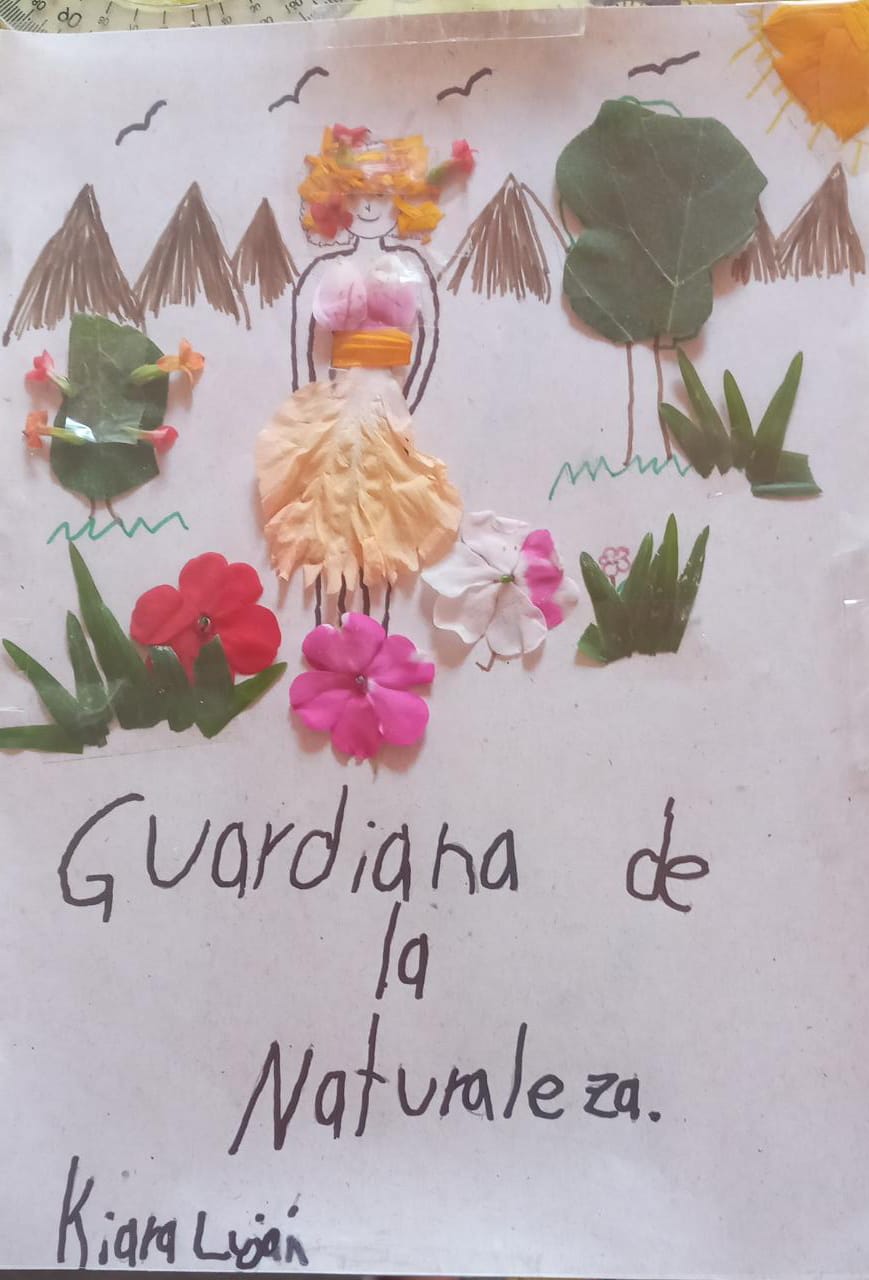 Guardiana de
la
Naturaleza.
Kiara Luján